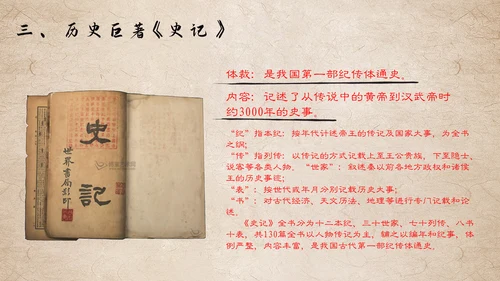 三、历史巨著《史记》
体裁：是我国第一部纪传体通史。
内容：记述了从传说中的黄帝到汉武帝时
约3000年的史事。
“纪”指本纪：按年代计述帝王的传记及国家大事，为全书
之纲；
“传”指列传：以传记的方式记载上至王公贵族，下至隐士、
说客等各类人物，“世家”：叙述秦以前各地方政权和诸侯
王的历史事迹；
“表”：按世代或年月分别记载历史大事；
“书”：对古代经济、天文历法、地理等进行专门记载和论
述。
《史记》全书分为十二本纪、三十世家、七十列传、八书
十表，共130篇全书以人物传记为主，辅之以编年和纪事，体
例严整，内容丰富，是我国古代第一部纪传体通史。
史记
世界书局影印